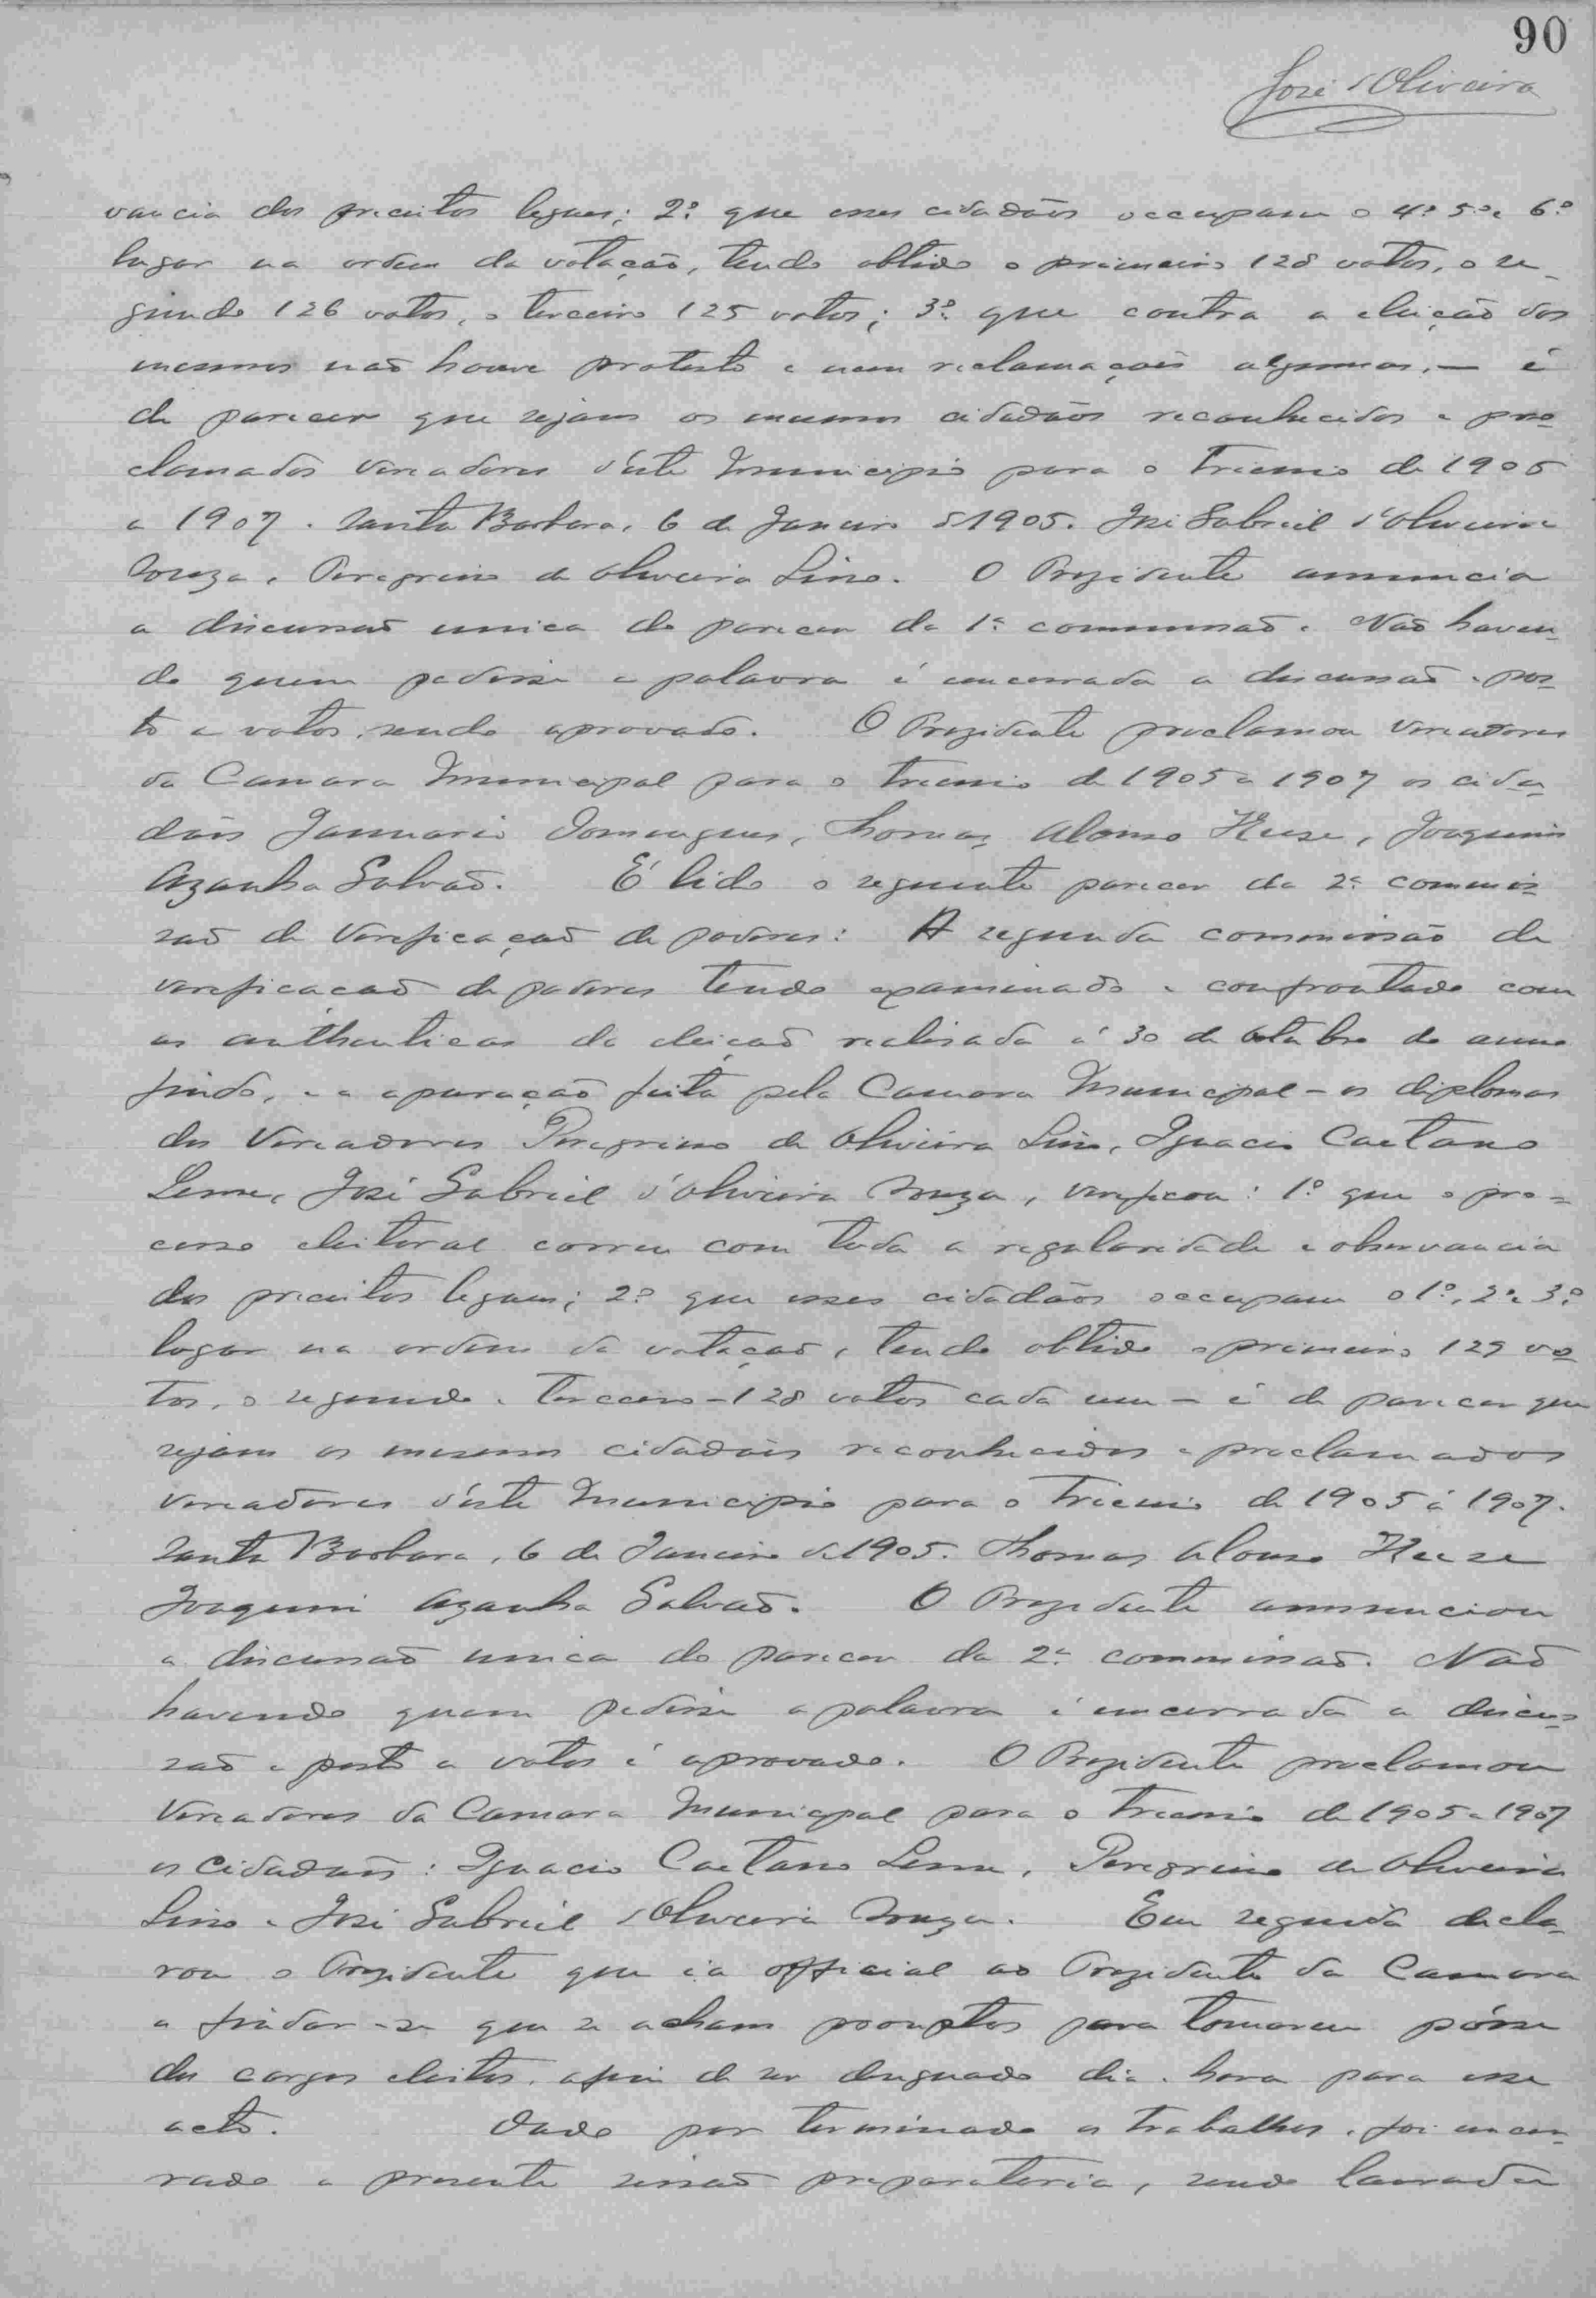 90
José d'Oliveira
vancia dos preceitos legaes; 2º que esses cidadãos occupam o 4º 5º e 6º
lugar na ordem da votação, tendo obtido o primeiro 128 votos, o se-
gundo 126 votos, o terceiro 125 votos; 3º que contra a eleição dos
mesmos não houve protesto e nem reclamações algumas, — é
de parecer que sejam os mesmos cidadãos reconhecidos e pro-
clamados vereadores d'este Municipio para o triennio de 1905
a 1907. Santa Barbara, 6 de Janeiro d 1905. José Gabriel d'Oliveira
Souza, Peregrino de Oliveira Lino. O Prezidente annuncia
a discussaõ unica do parecer da 1ª commissaõ. Naõ haven-
do quem pedisse a palavra é encerrada a discussaõ e pos-
to a votos, sendo aprovado. O Prezidente proclamou vereadores
da Camara Municipal para o triennio de 1905 a 1907 os cida-
dãos Januario Domingues, Thomaz Alonso Keese, Joaquim
Azanha Galvaõ. É lido o seguinte parecer da 2ª commis-
saõ de Verificaçaõ de poderes: A segunda commissão de
verificacaõ de poderes tendo examinado e confrontado com
as authenticas da eleiçaõ realisada á 30 de Outubro do anno
findo, e a apuração feita pela Camara Municipal - os diplomas
dos Vereadores Peregrino de Oliveira Lino, Ignacio Caetano
Leme, José Gabriel d'Oliveira Souza, verificou: 1º que o pro-
cesso eleitoral correu com toda a regularidade e observancia
dos preceitos legaes; 2º que esses cidadãos occupam o 1º, 2º e 3º
logar na ordem da votaçaõ, tendo obtido o primeiro 129 vo-
tos, o segundo e terceiro - 128 votos cada um - é de parecer que
sejam os mesmos cidadãos reconhecidos e proclamados
vereadores d'este Municipio para o Triennio de 1905 á 1907.
Santa Barbara, 6 de Janeiro de 1905. Thomaz Alonso Keese
Joaquim Azanha Galvaõ. O Prezidente annunciou
a discussaõ unica do parecer da 2ª commissaõ. Naõ
havendo quem pedisse a palavra é encerrada a discus-
saõ e posto a votos é aprovado. O Prezidente proclamou
Vereadores da Camara Municipal para o triennio de 1905 a 1907
os cidadaõs: Ignacio Caetano Leme, Peregrino de Oliveira
Lino e José Gabriel d'Oliveira Souza. Em seguida decla-
rou o Prezidente que ia official ao Prezidente da Camara
a findar-se que se acham promptos para tomarem pósse
dos cargos eleitos, afim de ser designado dia e hora para esse
acto. Dado por terminado os trabalhos, foi encer-
rado a presente sessaõ preparatoria, sendo lavrada